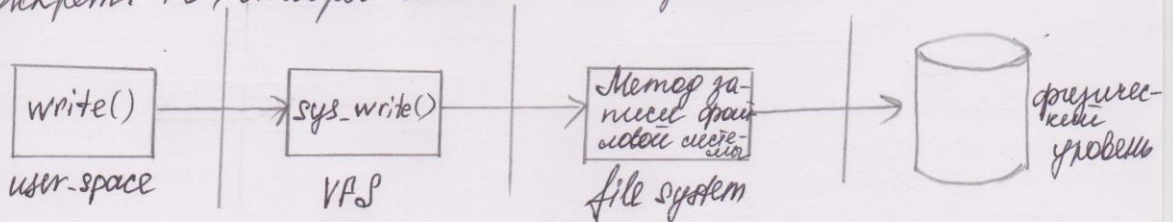 write()
user_space
sys_write()
VFS
Метод за-
писи фай
ловой систе-
мы
file system
физичес-
кий
уровень